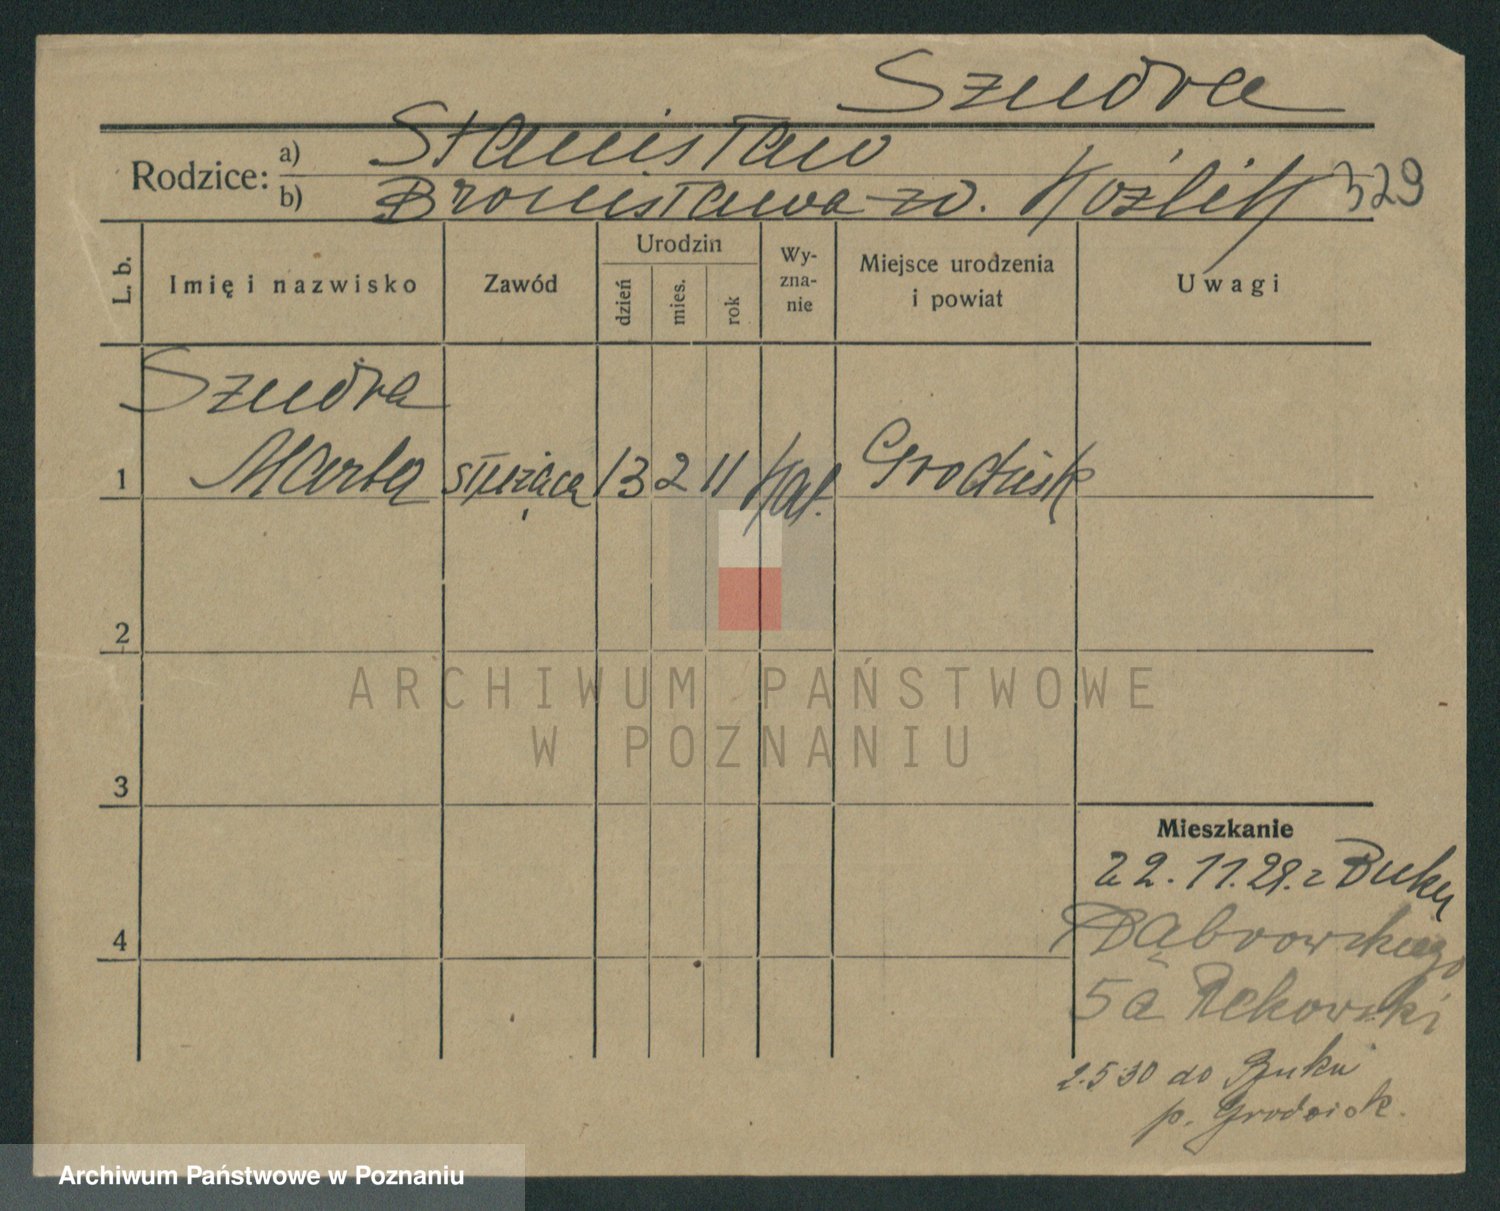 Szudra
Rodzice: a) Stanisław
b) Bronisława zd. Koźlik 329
L. b. Imię i nazwisko Zawód Urodzin dzień mies. rok Wy-zna-nie Miejsce urodzenia i powiat Uwagi
Szudra
1 Marta służąca 13 2 11 kat. Grodzisk
2
ARCHIWUM PAŃSTWOWE
W POZNANIU
3
Mieszkanie
22.11.29. z Buku
4 Dąbrowskiego
5a Rekowski
2.5 30 do Buku
p. Grodzisk.
Archiwum Państwowe w Poznaniu